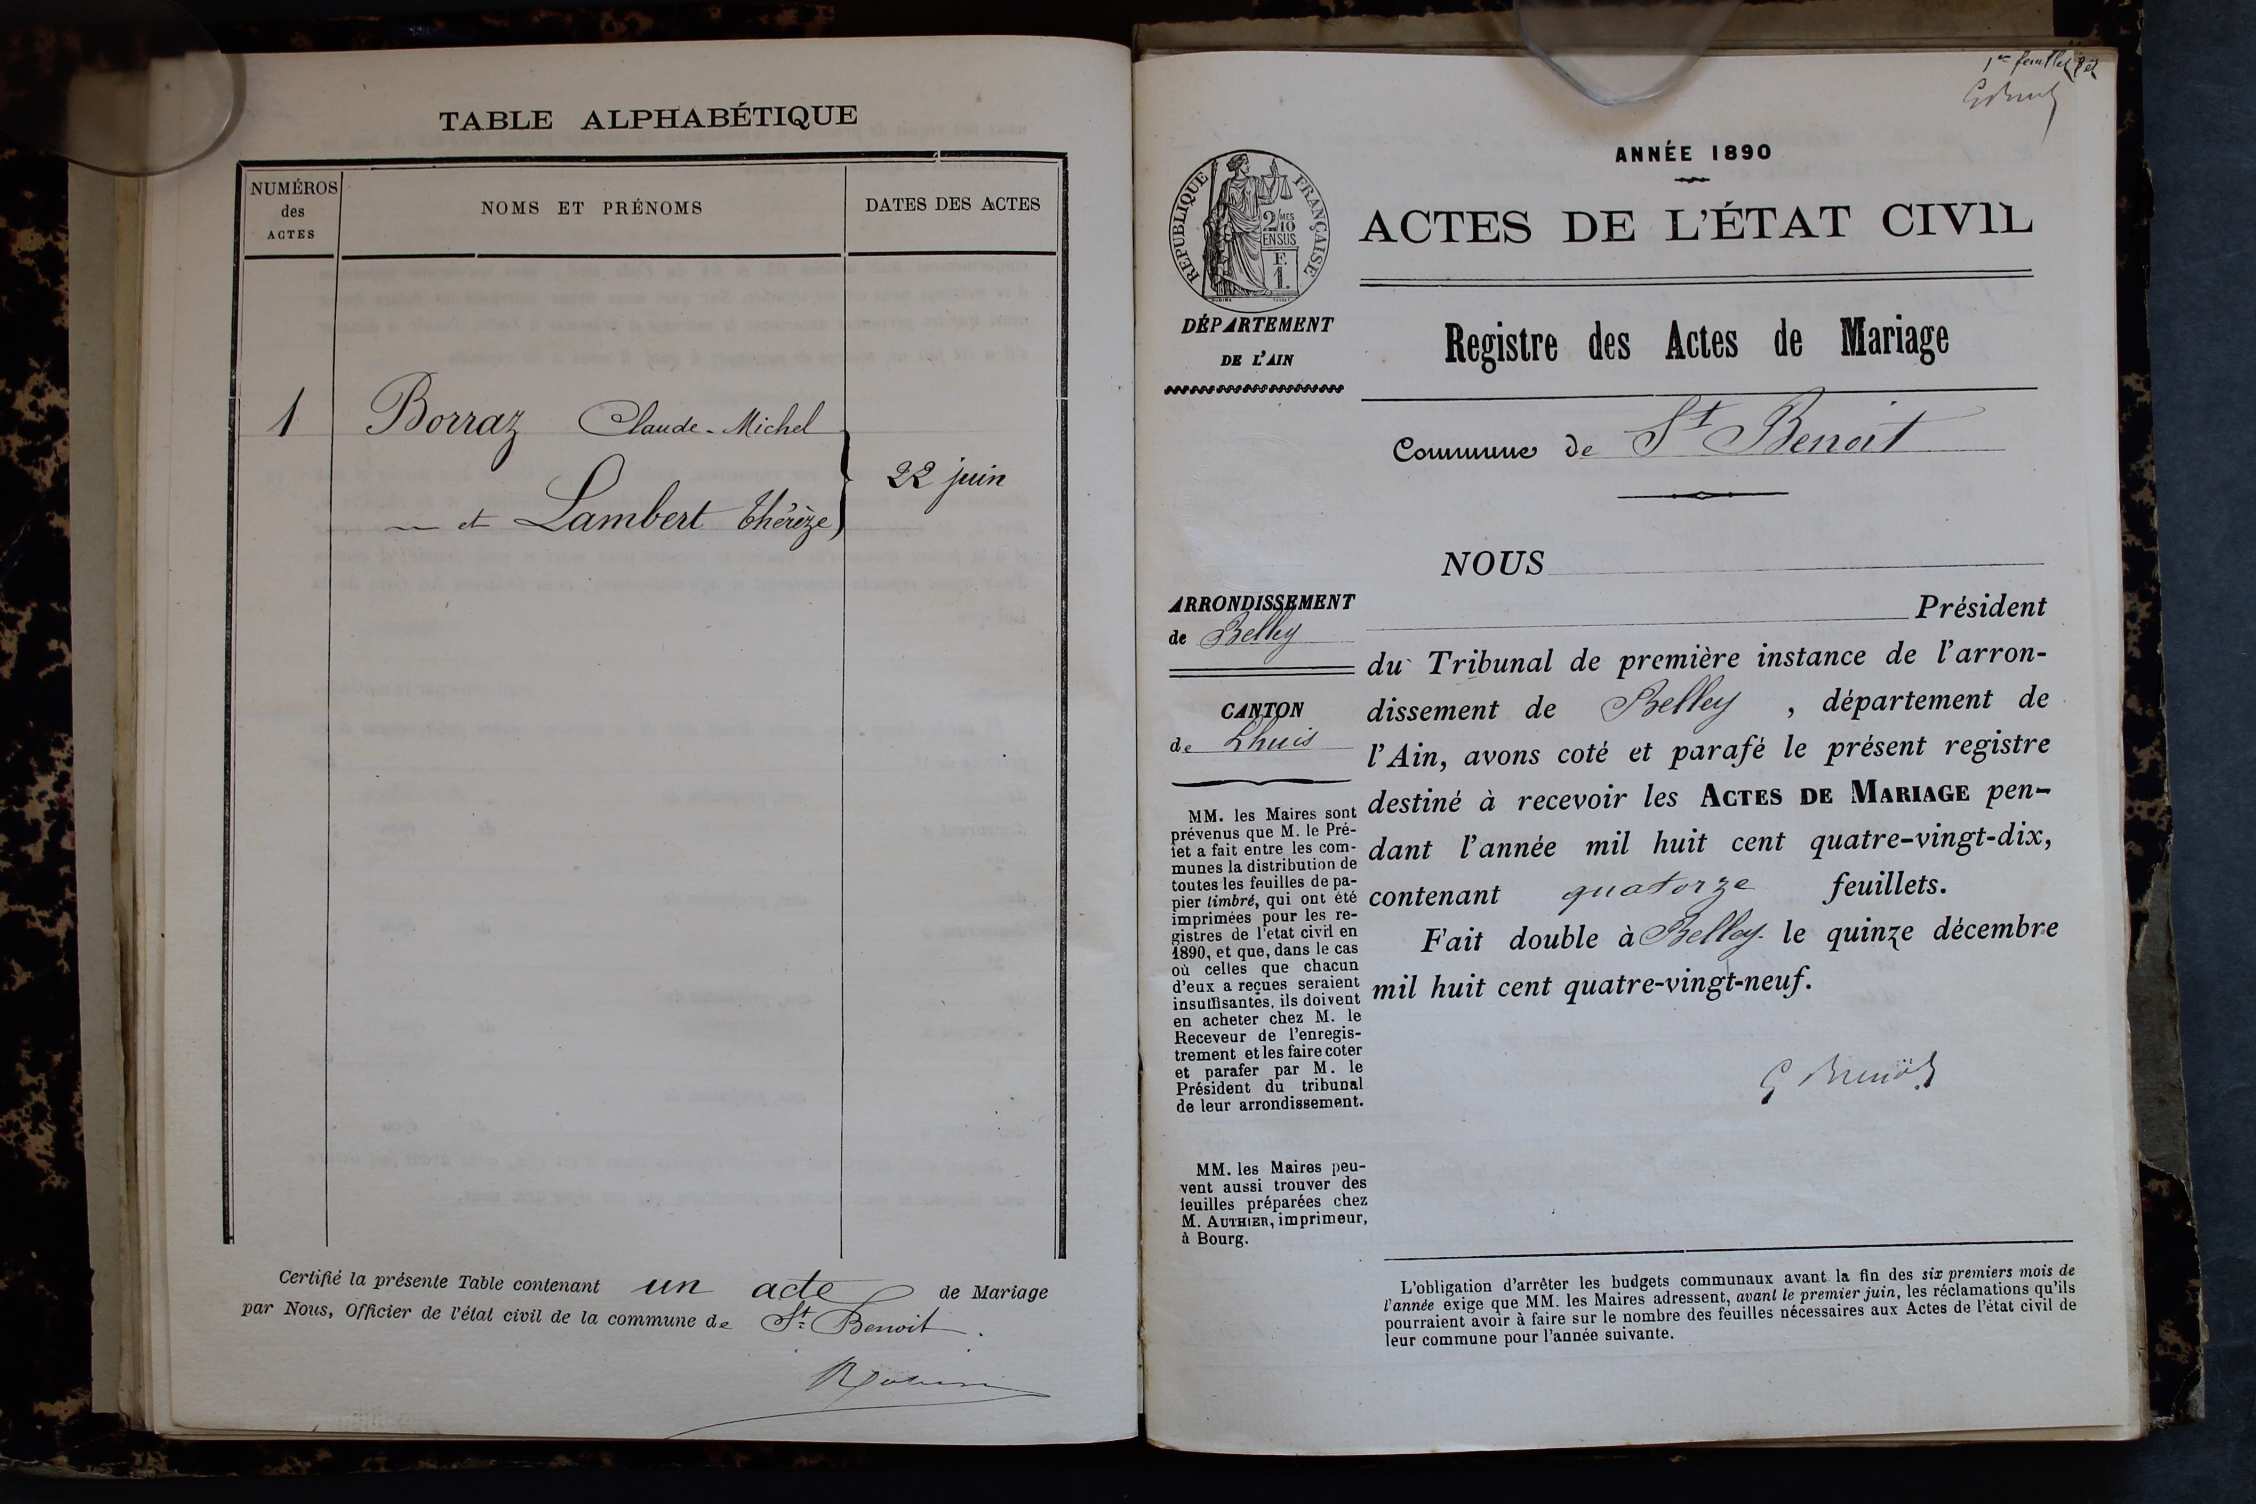 TABLE ALPHABÉTIQUE
NUMÉROS
des
ACTES
NOMS ET PRÉNOMS
DATES DES ACTES
1 Borraz Claude-Michel
22 juin
et Lambert Thérèze
Certifié la présente Table contenant un acte de Mariage
par Nous, Officier de l'état civil de la commune de St. Benoit.
1er feuillet
ANNÉE 1890
RÉPUBLIQUE FRANÇAISE
2/10
MES
EN SUS
F.
1.
ACTES DE L'ÉTAT CIVIL
DÉPARTEMENT
DE L'AIN
Registre des Actes de Mariage
Commune de St Benoit
NOUS
ARRONDISSEMENT
de Belley
CANTON
de Lhuis
MM. les Maires sont
prévenus que M. le Pré-
fet a fait entre les com-
munes la distribution de
toutes les feuilles de pa-
pier timbré, qui ont été
imprimées pour les re-
gistres de l'état civil en
1890, et que, dans le cas
où celles que chacun
d'eux a reçues seraient
insuffisantes, ils doivent
en acheter chez M. le
Receveur de l'enregis-
trement et les faire coter
et parafer par M. le
Président du tribunal
de leur arrondissement.
MM. les Maires peu-
vent aussi trouver des
feuilles préparées chez
M. AUTHIER, imprimeur,
à Bourg.
Président
du Tribunal de première instance de l'arron-
dissement de Belley , département de
l'Ain, avons coté et parafé le présent registre
destiné à recevoir les ACTES DE MARIAGE pen-
dant l'année mil huit cent quatre-vingt-dix,
contenant quatorze feuillets.
Fait double à Belley le quinze décembre
mil huit cent quatre-vingt-neuf.
L'obligation d'arrêter les budgets communaux avant la fin des six premiers mois de
l'année exige que MM. les Maires adressent, avant le premier juin, les réclamations qu'ils
pourraient avoir à faire sur le nombre des feuilles nécessaires aux Actes de l'état civil de
leur commune pour l'année suivante.